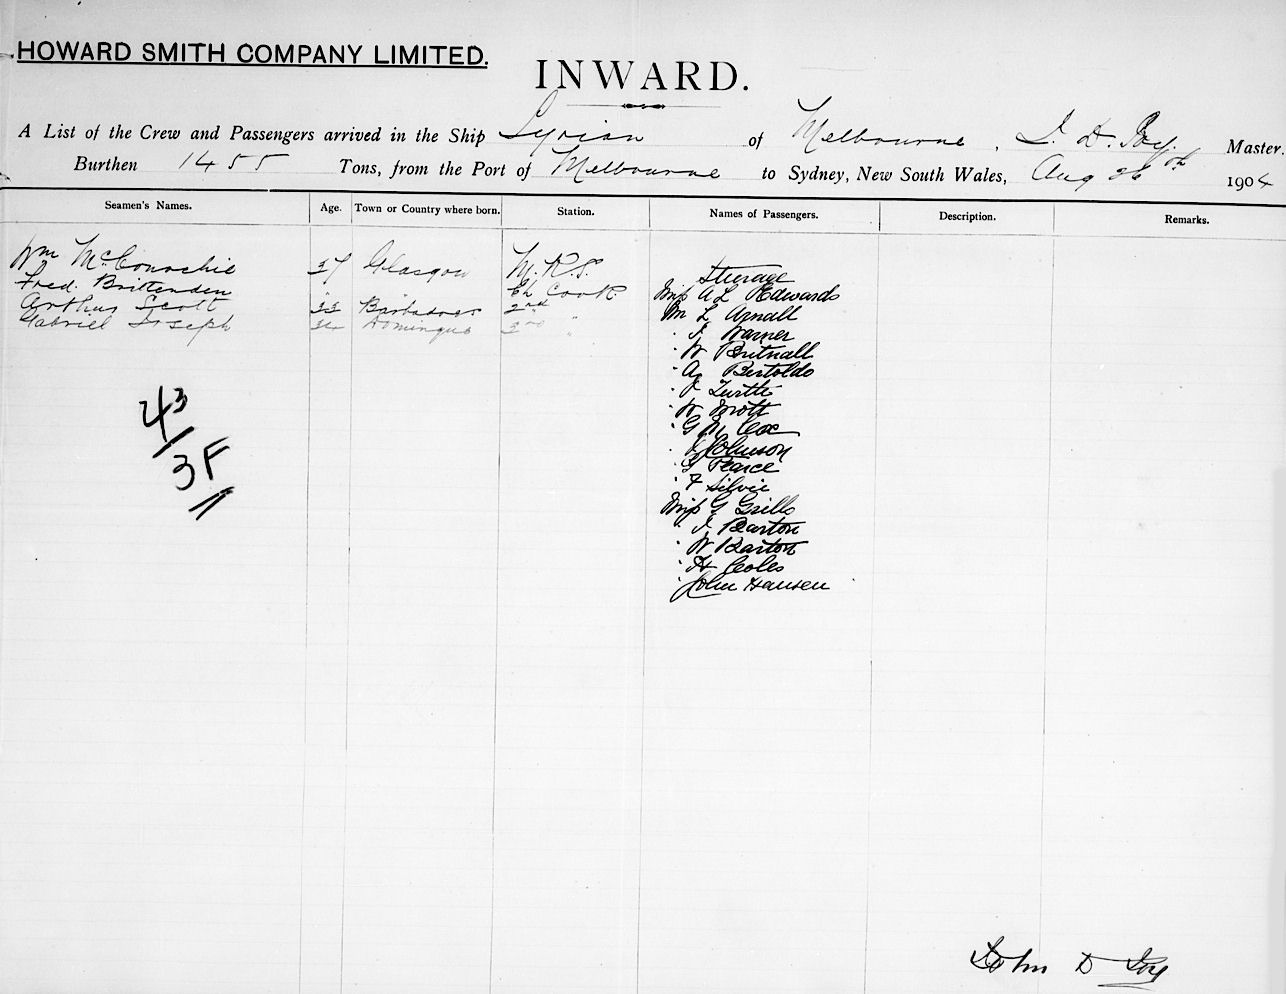 HOWARD SMITH COMPANY LIMITED.
INWARD.
A List of the Crew and Passengers arrived in the Ship Syrian of Melbourne, J. D. Joy. Master,
Burthen 1455 Tons, from the Port of Melbourne to Sydney, New South Wales, Aug 26th 1904
Seamen's Names. Age. Town or Country where born. Station. Names of Passengers. Description. Remarks.
Wm McConochie 37 Glasgow M.R.S.
Fred. Brittenden Ch Cook
Arthur Scott 33 Barbadoes 2nd "
Gabriel Joseph Domingue 3rd "
Steerage
Miss A L Edwards
Mr L Arnall
" J Warner
" W Britnall
" A Bertoldo
" J
" W Mott
" G M Cox
" J Johnson
" Pearce
" F Silvie
Miss G Grills
" J Barton
" W Barton
" H Coles
" John Hansen
43
3F
John D Joy